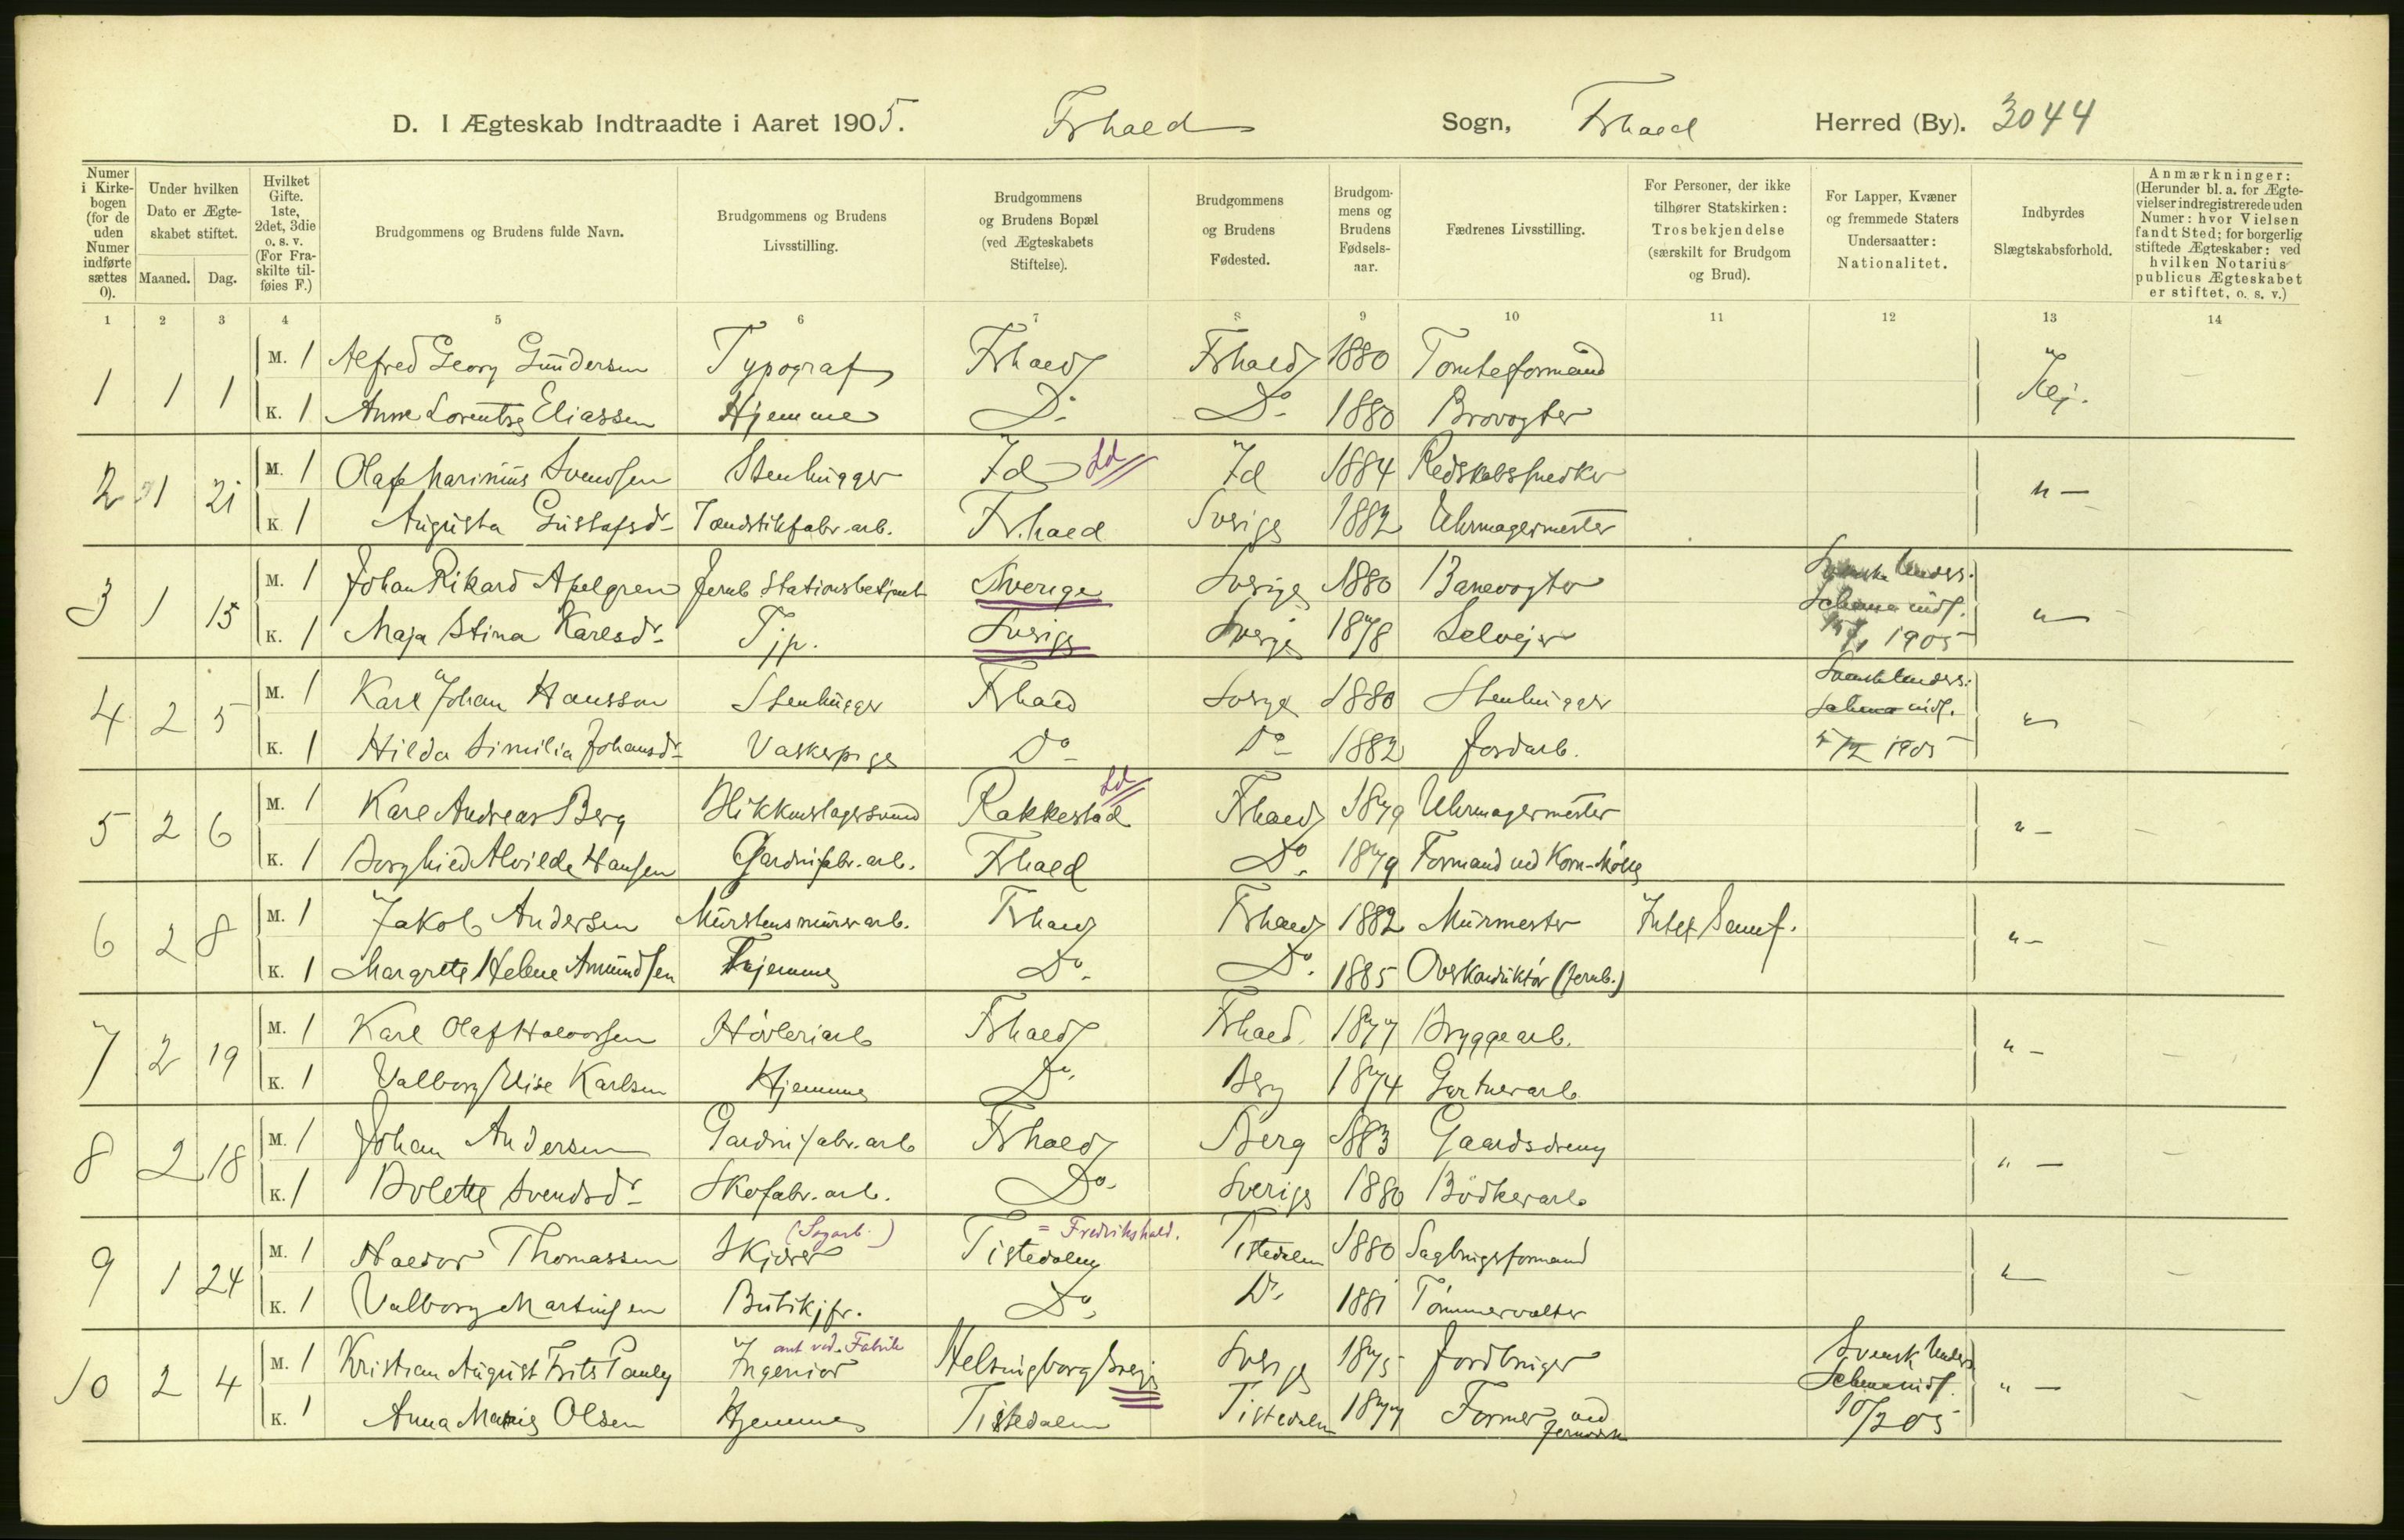 D. I Ægteskab Indtraadte i Aaret 1905. Frhald Sogn, Frhald Herred (By). 3044
Numer i Kirkebogen (for de uden Numer indførte sættes 0).
Under hvilken Dato er Ægteskabet stiftet.
Maaned. Dag.
Hvilket Gifte. 1ste, 2det, 3die o. s. v. (For Fraskilte tilføies F.)
Brudgommens og Brudens fulde Navn.
Brudgommens og Brudens Livsstilling.
Brudgommens og Brudens Bopæl (ved Ægteskabets Stiftelse).
Brudgommens og Brudens Fødested.
Brudgommens og Brudens Fødselsaar.
Fædrenes Livsstilling.
For Personer, der ikke tilhører Statskirken: Trosbekjendelse (særskilt for Brudgom og Brud).
For Lapper, Kvæner og fremmede Staters Undersaatter: Nationalitet.
Indbyrdes Slægtskabsforhold.
Anmærkninger: (Herunder bl. a. for Ægtevielser indregistrerede uden Numer: hvor Vielsen fandt Sted; for borgerlig stiftede Ægteskaber: ved hvilken Notarius publicus Ægteskabet er stiftet, o. s. v.)
1 2 3 4 5 6 7 8 9 10 11 12 13 14
1 1 1 M. 1 Alfred Georg Gundersen Typograf Frhald Frhald 1880 Tomteformand Nej. –
K. 1 Anne Lorentze Eliassen Hjemme Do. Do. 1880 Brovogter
2 1 21 M. 1 Olaf Marinius Svendsen Stenhugger Id Ld Id 1884 Redskabssnedker " –
K. 1 Augusta Gustafsdr. Tændstikfabr.arb. Fr.hald Sverige 1882 Uhrmagermester
3 1 15 M. 1 Johan Rikard Apelgren Jernb Stationsbetjent Sverige Sverige 1880 Banevogter Svensk Unders. Schema indf. 15/1 1905 " –
K. 1 Maja Stina Karlsdr. Tjp. Sverige Sverige 1878 Selvejer
4 2 5 M. 1 Karl Johan Hansson Stenhugger Frhald Sverge 1880 Stenhugger Svensk Unders. Schema indf. 5/2 1905 " –
K. 1 Hilda Similia Johansdr. Vaskepige Do. Do. 1882 Jordarb.
5 2 6 M. 1 Karl Andreas Berg Blikkenslagersvend Rakkestad Ld Frhald 1879 Uhrmagermester " – –
K. 1 Borghild Alvilde Hansen Gardinfabr.arb. Frhald Do. 1879 Formand ved Korn-Mølle
6 2 8 M. 1 Jakob Andersen Murstensmurerarb. Frhald Frhald 1882 Murmester Intet Samf. " – –
K. 1 Margrete Helene Amundsen Hjemme Do. Do. 1885 Overkonduktør (Jernb.)
7 2 19 M. 1 Karl Olaf Halvorsen Høvleriarb Frhald Frhald 1877 Bryggearb. " – –
K. 1 Valborg Elise Karlsen Hjemme Do. Berg 1874 Gartnerarb.
8 2 18 M. 1 Johan Andersen Gardinfabr.arb Frhald Berg 1883 Gaardsdreng " – –
K. 1 Bolette Svendsdr. Skofabr.arb. Do. Sverige 1880 Bødkerarb
9 1 24 M. 1 Haldor Thomassen Skjærer (Sagarb.) Tistedalen = Fredrikshald. Tistedalen 1880 Sagbrugsformand " – –
K. 1 Valborg Martinsen Butikjfr. Do. Do. 1881 Tømmervalter
10 2 4 M. 1 Kristian August Frits Pauly Ingeniør ant. ved Fabrik Helsingborg Sverge Sverge 1875 Jordbruger Svensk Unders Schema indf. 10/2 05 " – –
K. 1 Anna Marie Olsen Hjemme Tistedalen Tistedalen 1877 Former ved Jernværk